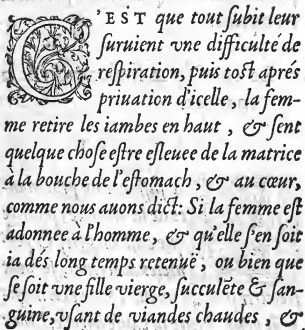 C'EST que tout ſubit leur
ſuruient vne difficulté de
reſpiration, puis toſt aprés
priuation d'icelle, la fem-
me retire les iambes en haut, & ſent
quelque choſe eſtre eſleuee de la matrice
à la bouche de l'eſtomach, & au cœur,
comme nous auons dict: Si la femme eſt
adonnee à l'homme, & qu'elle s'en ſoit
ia dés long temps retenuë, ou bien que
ſe ſoit vne fille vierge, ſucculẽte & ſan-
guine, vſant de viandes chaudes, &